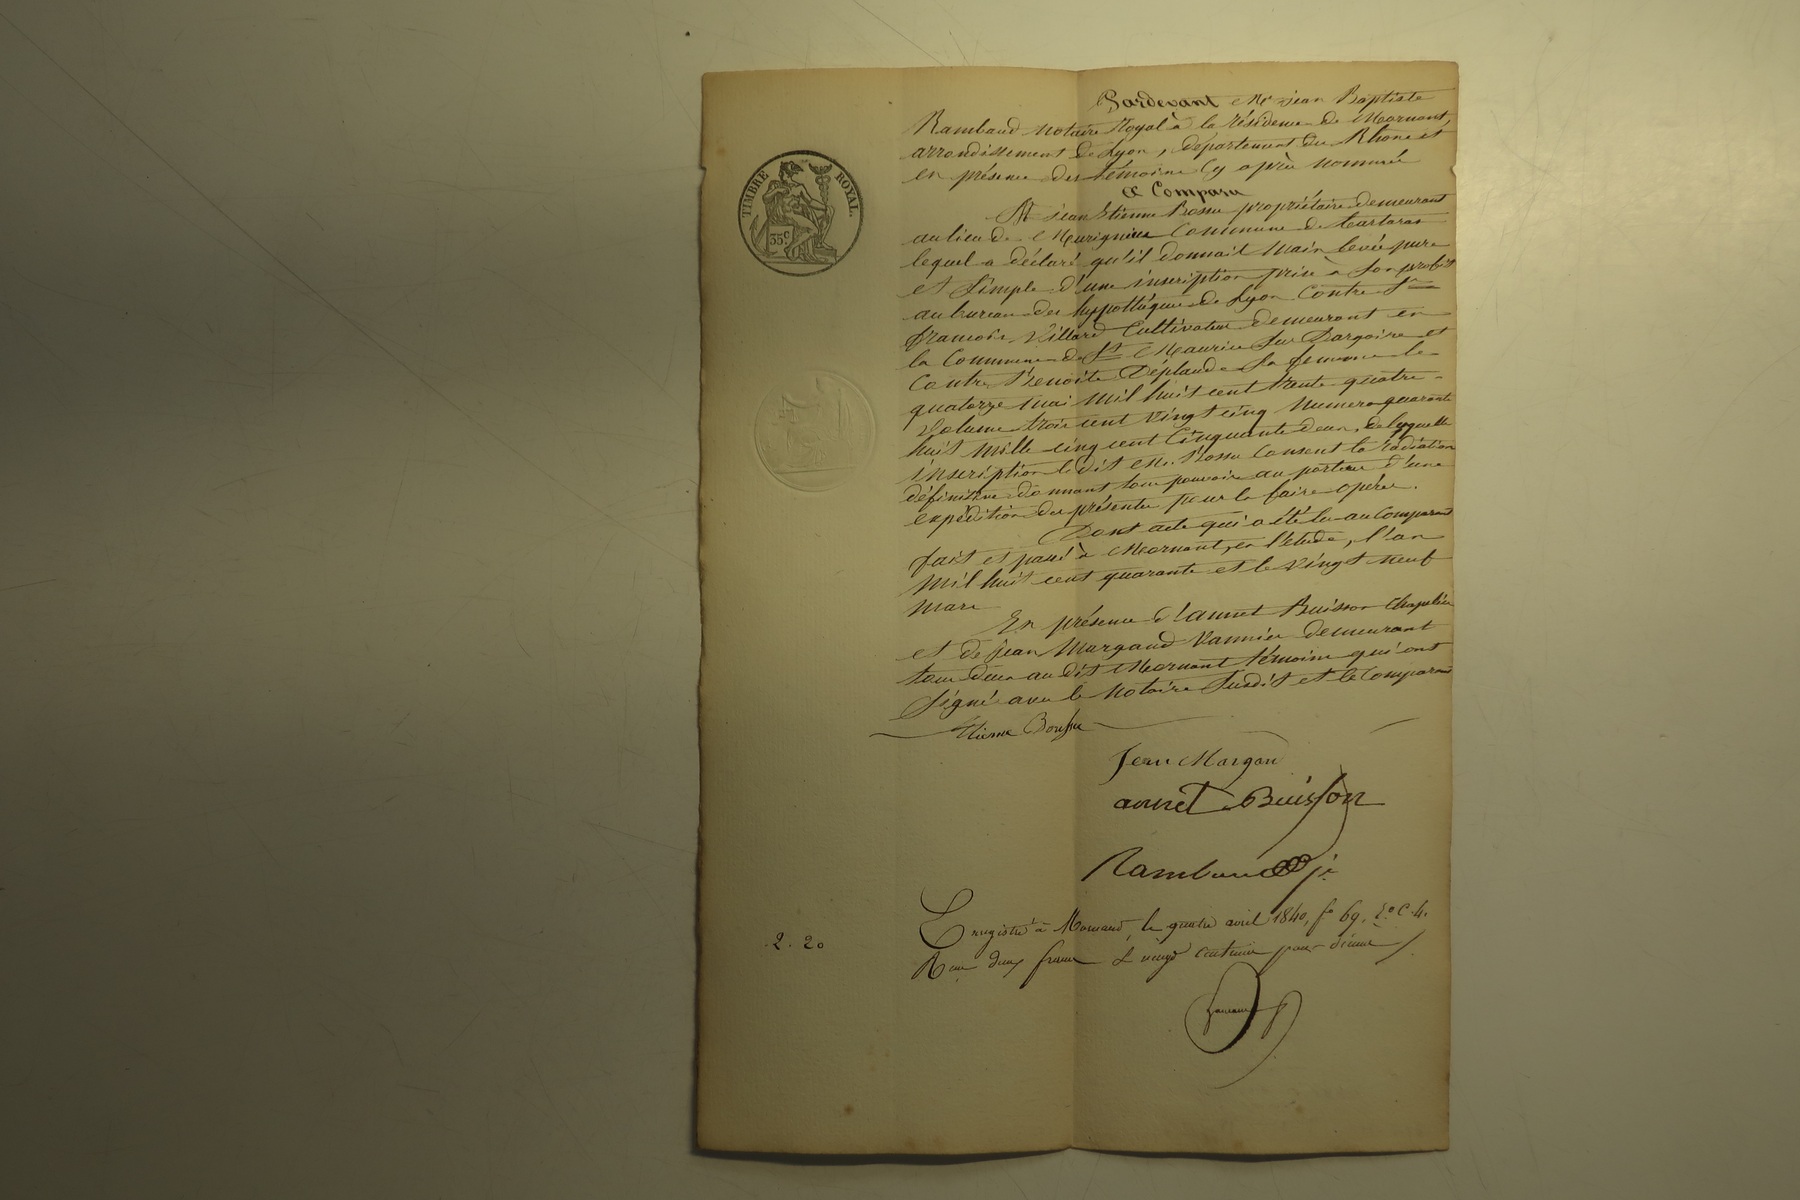 Pardevant Me Jean Baptiste
Rambaud Notaire Royal à la résidence de Mornant,
arrondissement de Lyon, département du Rhone et
en présence des témoins Cy après nommés
a Comparu
TIMBRE ROYAL.
35 C.
Mr Jean Etienne Bossu propriétaire demeurant
au lieu de Commune de tartaras
lequel a déclaré qu'il donnait main levée pure
et simple d'une inscription prise à son profit
au bureau des hypothèques de Lyon contre Sr
françois Villard Cultivateur demeurant en
la Commune de St Maurice Sur Dargoire et
Contre Benoite Déplaude Sa femme le
quatorze mai mil huit cent trente quatre
Volume trois cent vingt cinq Numero quarante
huit mille cinq cent cinquante deux, de laquelle
inscription le dit Mr. Bossu Consent la radiation
définitive donnant tout pouvoir au porteur d'une
expédition des présentes pour la faire opérer.
Dont acte qui a été lu au Comparant
fait et passé à Mornant, en l'étude, l'an
Mil huit cent quarante et le vingt neuf
mars
En présence d'annet Buisson Chapelier
et de Jean Margaud Vannier demeurant
tous deux au dit Mornant témoins qui ont
Signé avec le Notaire Susdit et le Comparant
Etienne Boussu
Jean Margau
annet Buisson
Rambaud
Enregistré à Mornant, le quatre avril 1840, fo 69, Ro C. 4.
2. 20
Reçu deux francs & vingt centimes pour décime